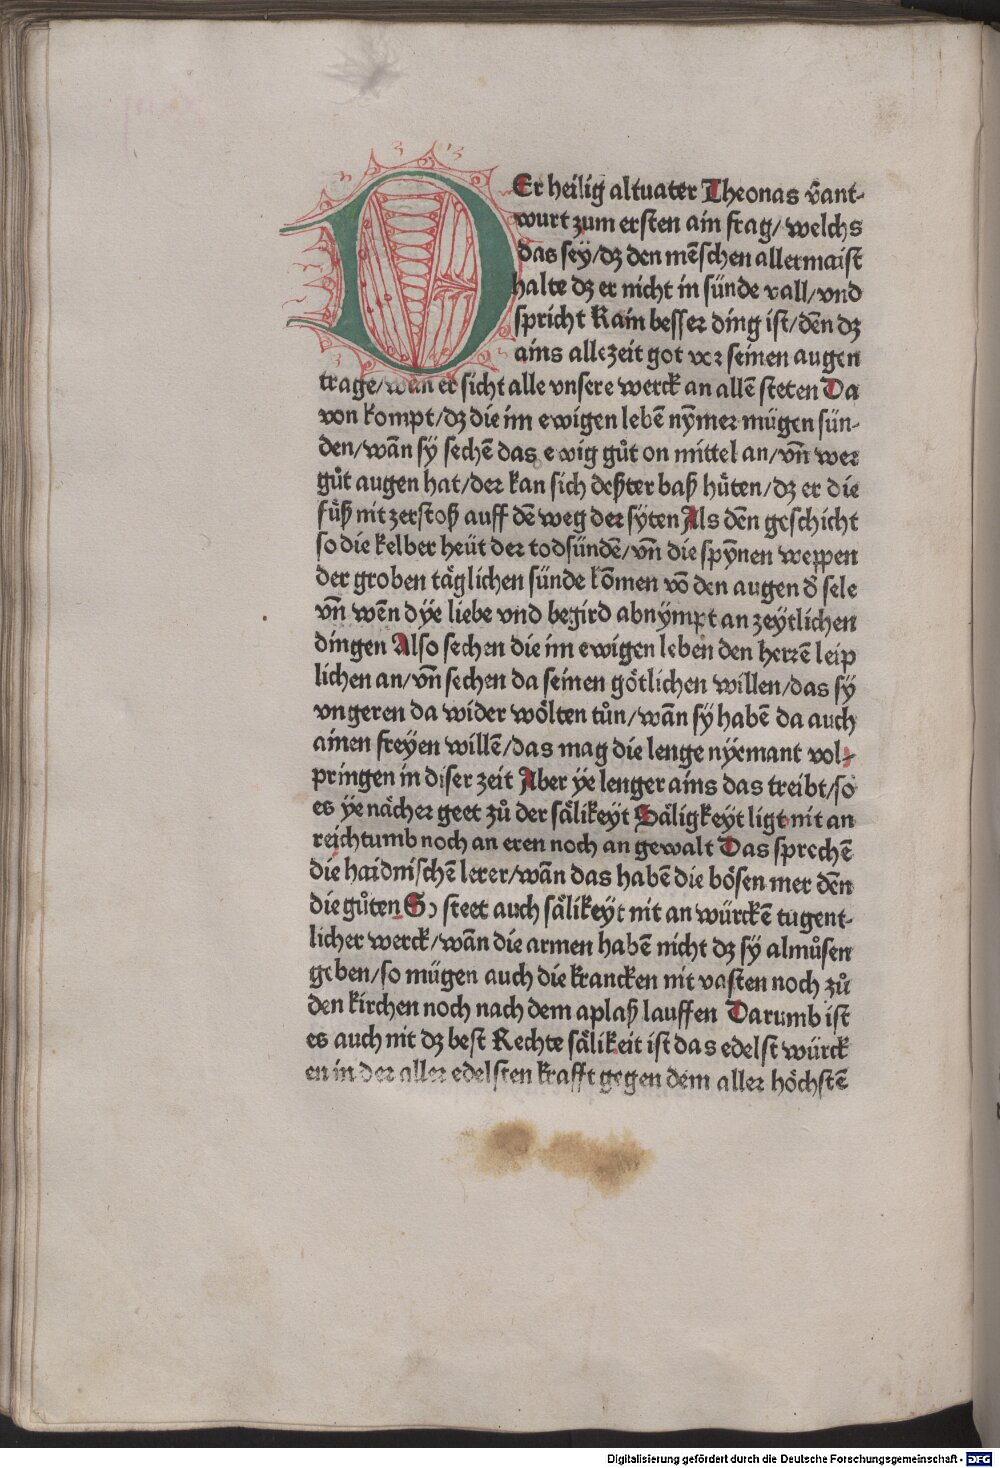 DEr heilig altuater Theonas v̄ant-
wurt zum ersten ain frag/ welchs
das sey/ dz den mēschen allermaist
halte dz er nicht in sünde vall/ vnd
spricht Kain besser ding ist/ dēn dz
ains allezeit got vor seinen augen
trage/ wan er sicht alle vnsere werck an allē steten Da
von kompt/ dz die im ewigen lebē nȳmer mügen sün-
den/ wān sy sechē das ewig gůt on mittel an/ vn̄ wer
gůt augen hat/ der kan sich deßter baß hüten/ dz er die
füß nit zerstoß auff dē weg der syten Als dēn geschicht
so die kelber heüt der todsündē/ vn̄ die spȳnen weppen
der groben täglichen sünde kōmen vō den augen d̄ sele
vn̄ wēn dÿe liebe vnd begird abnÿmpt an zeytlichen
dingen Also sechen die im ewigen leben den herrē leip
lichen an/ vn̄ sechen da seinen götlichen willen/ das sÿ
vngeren da wider wölten tůn/ wān sÿ habē da auch
ainen freÿen willē/ das mag die lenge nÿemant vol-
pringen in diser zeit Aber ÿe lenger ains das treibt/ so
es ÿe nächer geet zů der sälikeÿt Säligkeÿt ligt nit an
reichtumb noch an eren noch an gewalt Das sprechē
die haidnischē lerer/ wān das habē die bösen mer dēn
die gůten So steet auch sälikeÿt nit an würckē tugent-
licher werck/ wān die armen habē nicht dz sÿ almůsen
geben/ so mügen auch die krancken nit vasten noch zů
den kirchen noch nach dem aplaß lauffen Darumb ist
es auch nit dz best Rechte sälikeit ist das edelst würck
en in der aller edelsten krafft gegen dem aller höchstē
Digitalisierung gefördert durch die Deutsche Forschungsgemeinschaft - DFG